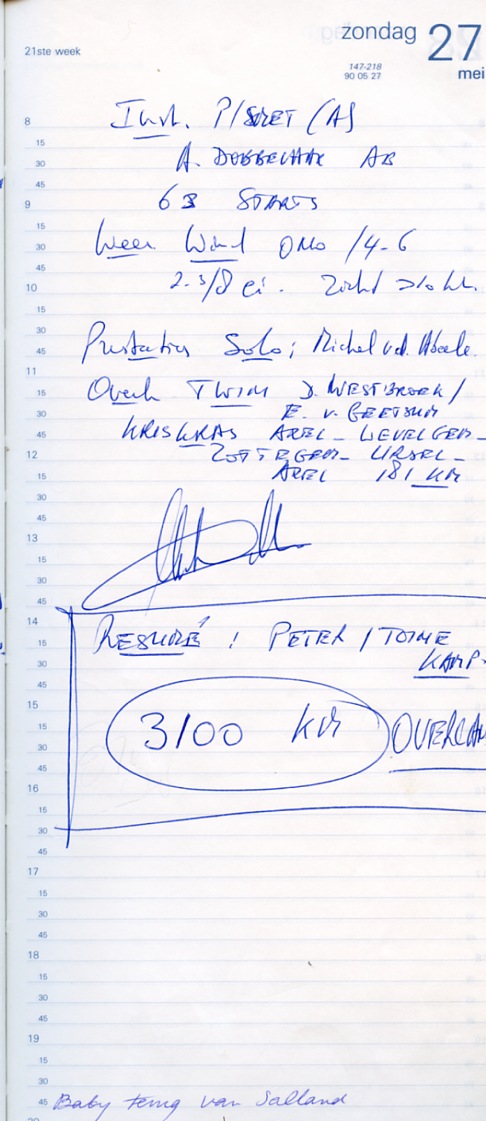 zondag 27
21ste week
147-218
90 05 27
mei
8
Inst. P/ (A)
15
A. DOBBELAAR AB
30
45
63 STARTS
9
15
Weer Wind ONO /4-6
30
45
2-3/8 ci. Zicht >10 km.
10
15
30
Prestaties Solo; Michel v.d. Abeele.
45
11
Overl. TWIN J. WESTBROEK /
15
E. v.
30
KRISKRAS AXEL - WEVELGEM -
45
ZOTTEGEM - URSEL -
12
AXEL 181 KM
15
30
45
13
15
30
45
14
RESUMÉ ! PETER / TOINE
15
KAMP-
30
45
15
3100 KM OVERLA
15
30
45
16
15
30
45
17
15
30
45
18
15
30
45
19
15
30
45
Baby terug van Salland
20